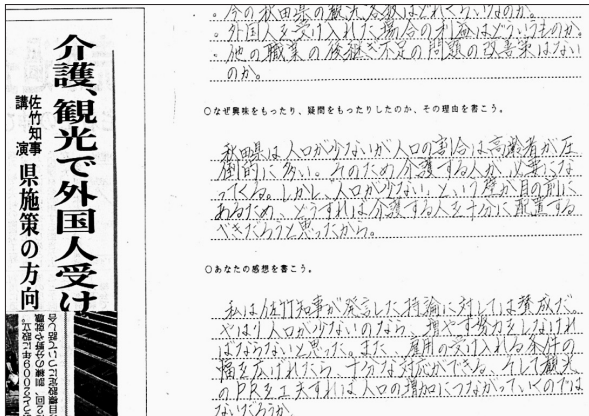 介護、観光で外国人受け
佐竹知事
講演
県施策の方向
・今の秋田県の観光客数はどれくらいなのか。
・外国人を受け入れた場合の利害はどういうものか。
・他の職業の後継ぎ不足の問題の改善策はない
のか。
○なぜ興味をもったり、疑問をもったりしたのか、その理由を書こう。
秋田県は人口が少ないが人口の割合は高齢者が圧
倒的に多い。そのため介護する人が必要にな
ってくる。しかし、人口が少ない、という壁が目の前に
あるため、どうすれば介護する人を十分に配置する
べきだろうと思ったから。
○あなたの感想を書こう。
私は佐竹知事が発言した持論に対しては賛成だ。
やはり人口が少ないのなら、増やす努力をしなけれ
ばならないと思った。また、雇用の受け入れる条件の
幅を広げれたら、十分な対応ができる。そして観光
のPRを工夫すれば人口の増加につながっていくのでは
ないだろうか。